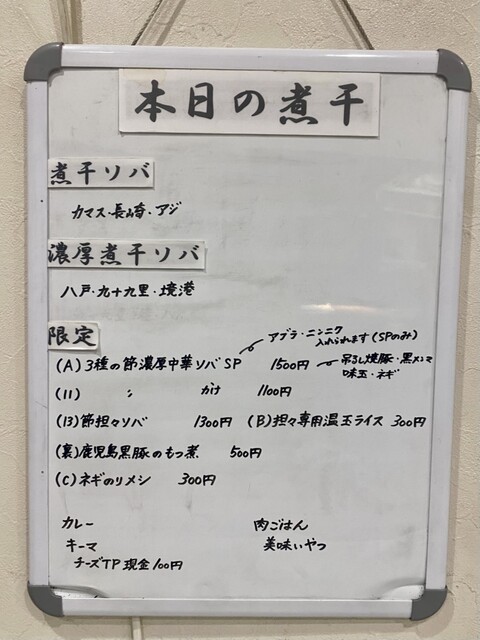 本日の煮干
煮干ソバ
カマス・長崎・アジ
濃厚煮干ソバ
八戸・九十九里・境港
限定
アブラ・ニンニク
入れられます(SPのみ)
(A) 3種の節濃厚中華ソバSP 1500円 吊るし焼豚・黒メンマ
味玉・ネギ
(11) 〃 かけ 1100円
(13) 節担々ソバ 1300円 (B) 担々専用温玉ライス 300円
(裏) 鹿児島黒豚のもつ煮 500円
(C) ネギのりメシ 300円
カレー 肉ごはん
キーマ 美味いやつ
チーズTP 現金100円